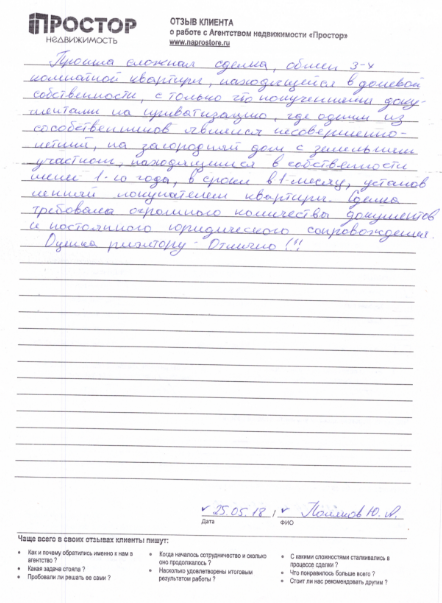 ПРОСТОР
НЕДВИЖИМОСТЬ
ОТЗЫВ КЛИЕНТА
о работе с Агентством недвижимости «Простор»
www.naprostore.ru
Прошла сложная сделка, обмен 3-х
комнатной квартиры, находящейся в долевой
собственности, с только что полученными доку-
ментами на приватизацию, где одним из
сособственников являлся несовершенно-
летний, на загородный дом с земельным
участком, находящимся в собственности
менее 1-го года, в сроки в 1 месяц, установ
ленный покупателем квартиры. Сделка
требовала огромного количества документов
и постоянного юридического сопровождения.
Оценка риэлтору - Отлично!!!
25.05.18 Ю.А.
Дата ФИО
Чаще всего в своих отзывах клиенты пишут:
• Как и почему обратились именно к нам в агентство ?
• Какая задача стояла ?
• Пробовали ли решать ее сами ?
• Когда началось сотрудничество и сколько оно продолжалось ?
• Насколько удовлетворены итоговым результатом работы ?
• С какими сложностями сталкивались в процессе сделки ?
• Что понравилось больше всего ?
• Стоит ли нас рекомендовать другим ?